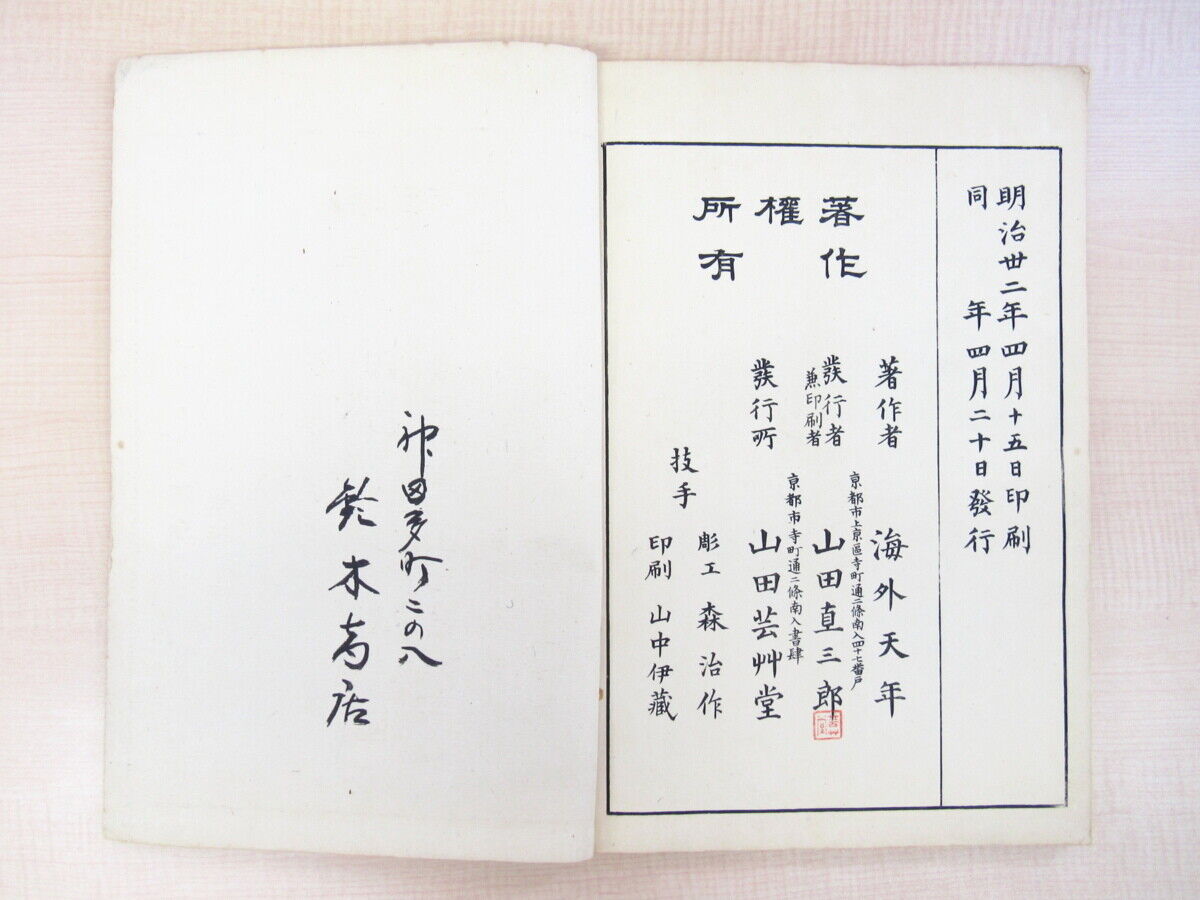 明治丗二年四月十五日印刷
同年四月二十日發行
著作
權
所有
著作者 海外天年
京都市上京區寺町通二條南入四十七番戸
發行者 山田直三郎
兼印刷者
京都市寺町通二條南入書肆
發行所 山田芸艸堂
技手
彫工 森治作
印刷 山中伊藏
神田多町二の八
鈴木書店